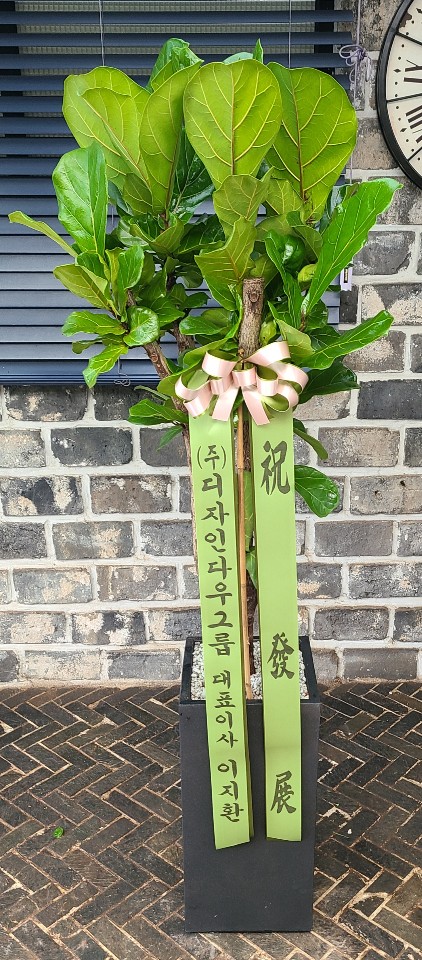 (주)디자인다우그룹 대표이사 이지환
祝 發 展